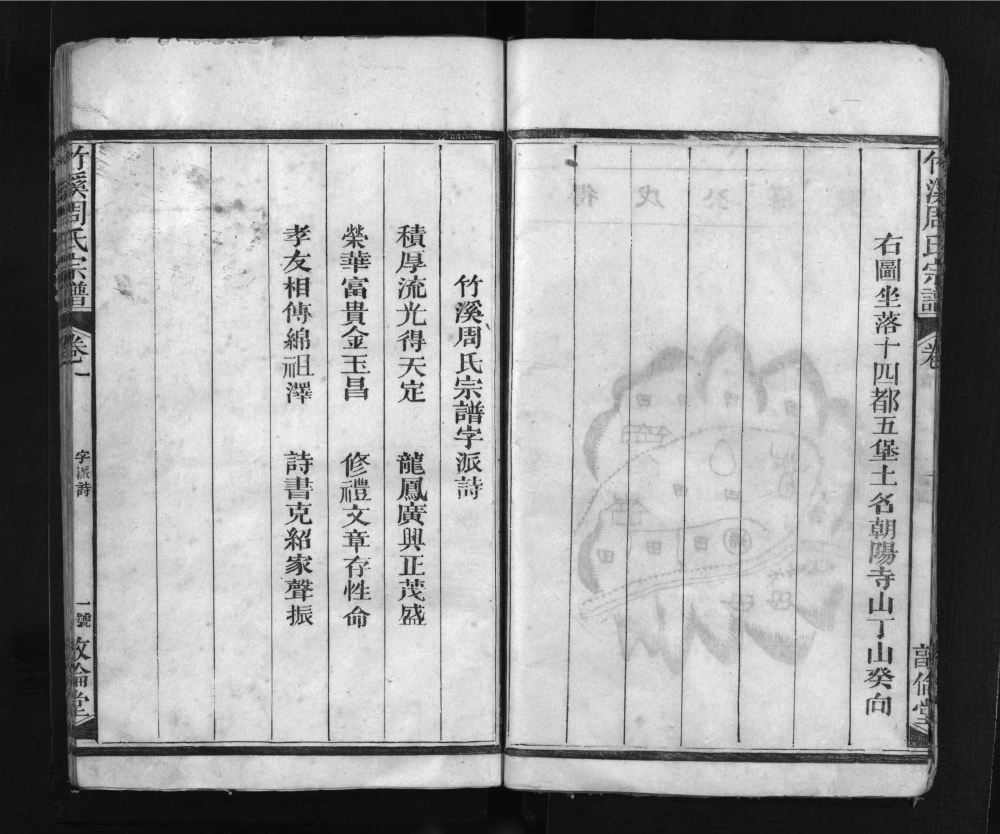 竹溪周氏宗譜
卷
敦倫堂
右圖坐落十四都五堡土名朝陽寺山丁山癸向
竹溪周氏宗譜字派詩
積厚流光得天定 龍鳳廣興正茂盛
榮華富貴金玉昌 修禮文章存性命
孝友相傳綿祖澤 詩書克紹家聲振
竹溪周氏宗譜
卷一
字派詩
一號
敦倫堂